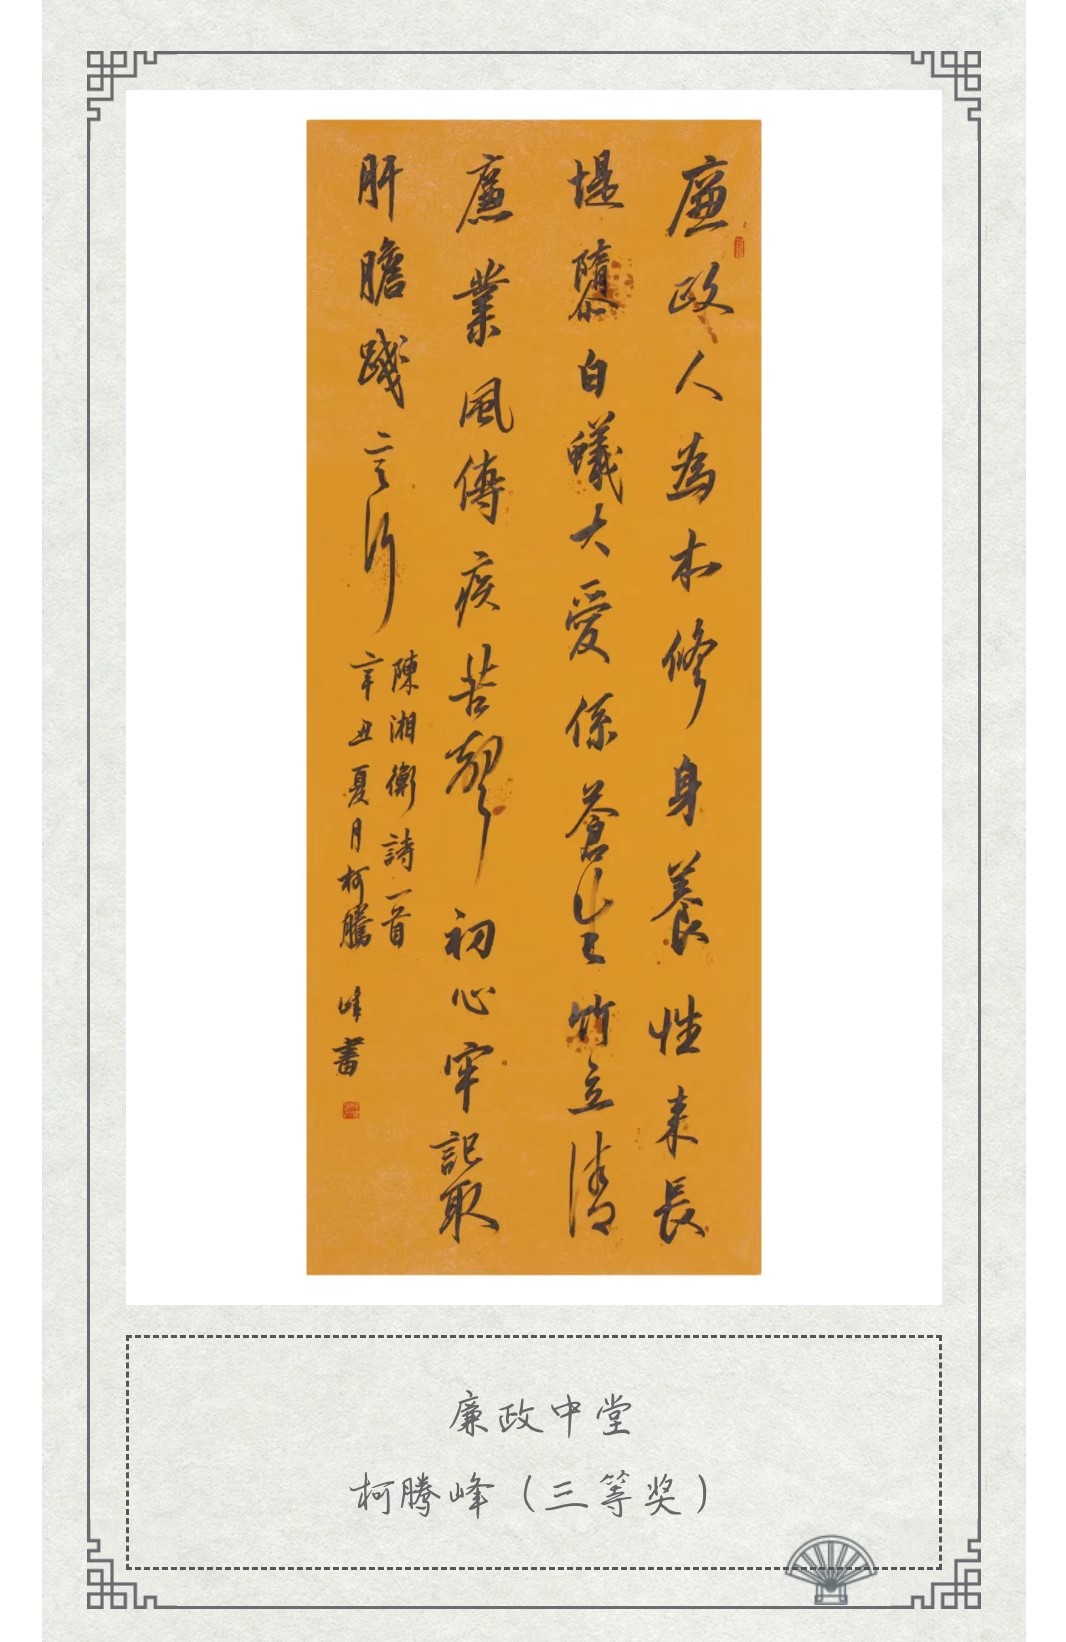 廉政人為本修身養性来長
堤隳白蟻大愛係蒼生竹立清
廉業風傳疾苦聲初心牢記取
肝膽踐言行
陳湘衡詩一首
辛丑夏月柯騰峰書
廉政中堂
柯腾峰（三等奖）